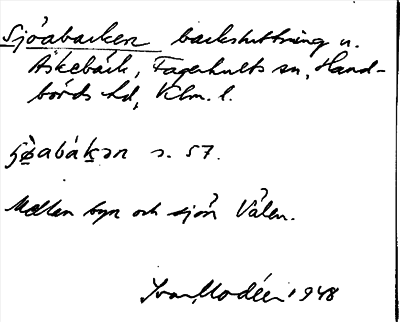 Sjöabacken backsluttning u.
Äskebäck, Fagerhults sn, Hand-
börds hd, Klm. l.
s. 57.
Mellan byn och sjön Välen.
Ivar Modéer 1948